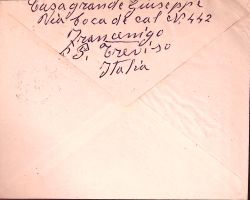 Casagrande Giuseppe
Via foca de cal N 442
Francenigo
P. Treviso
Italia